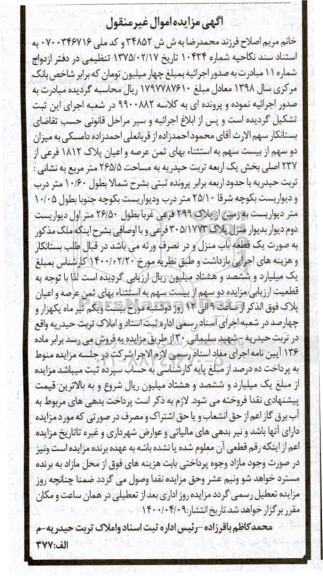 آگهی مزایده اموال غیرمنقول
خانم مریم اصلاح فرزند محمدرضا به ش ش ۳۴۸۵۲ و کد ملی ۰۷۰۰۳۴۶۷۱۶ به
استناد سند نکاحیه شماره ۱۰۴۳۴ تاریخ ۱۳۷۵/۰۲/۱۷ تنظیمی در دفتر ازدواج
شماره ۱۱ مبادرت به صدور اجرائیه بمبلغ چهار میلیون تومان که برابر شاخص بانک
مرکزی سال ۱۳۹۸ معادل مبلغ ۱۷۹۷۷۸۷۶۱۰ ریال محاسبه گردیده مبادرت به
صدور اجرائیه نموده و پرونده ای به کلاسه ۹۹۰۰۸۸۲ در شعبه اجرای این ثبت
تشکیل گردیده است و پس از ابلاغ اجرائیه و سیر مراحل قانونی حسب تقاضای
بستانکار سهم الارث آقای محمود احمدزاده از قربانعلی احمدزاده دامسکی به میزان
دو سهم از بیست سهم به استثناء بهای ثمن عرصه و اعیان پلاک ۱۸۱۲ فرعی از
۲۳۷ اصلی بخش یک اربعه تربت حیدریه به مساحت ۲۶۵/۵ متر مربع به نشانی :
تربت حیدریه با حدود اربعه برابر پرونده ثبتی بشرح شمالا بطول ۱۰/۶۰ متر درب
و دیواریست بکوچه شرقا ۲۵/۱۰ متر درب ودیواریست بکوچه جنوبا بطول ۱۰/۰۵
متر دیواریست به زمین از پلاک ۲۹۹ فرعی غربا بطول ۲۶/۵۰ متر اول دیواریست
دوم دیوار بدیوار منزل پلاک ۳۰۵/۱۷۷۳ فرعی و با اوصافی بشرح اینکه ملک مذکور
به صورت یک قطعه باب منزل و در تصرف ورثه می باشد در قبال طلب بستانکار
و هزینه های اجرایی بازداشت و طبق نظریه مورخ ۱۴۰۰/۰۲/۲۰ کارشناس بمبلغ
یک میلیارد و ششصد و هشتاد میلیون ریال ارزیابی گردیده است لذا با توجه به
قطعیت ارزیابی مزایده دو سهم از بیست سهم به استثناء بهای ثمن عرصه و اعیان
پلاک فوق الذکر از ساعت ۹ الی ۱۲ روز دوشنبه مورخ بیست ویکم تیر ماه یکهزار و
چهارصد در شعبه اجرای اسناد رسمی اداره ثبت اسناد و املاک تربت حیدریه واقع
در تربت حیدریه - شهید سلیمانی ۳۰ از طریق مزایده به فروش می رسد برابر ماده
۱۳۶ آیین نامه اجرای مفاد اسناد رسمی لازم الاجرا شرکت در جلسه مزایده منوط
به پرداخت ده درصد از مبلغ پایه کارشناسی به حساب سپرده ثبت میباشد مزایده
از مبلغ یک میلیارد و ششصد و هشتاد میلیون ریال شروع و به بالاترین قیمت
پیشنهادی نقدا فروخته می شود. لازم به ذکر است پرداخت بدهی های مربوط به
آب برق گاز اعم از حق انشعاب و یا حق اشتراک و مصرف در صورتی که مورد مزایده
دارای آنها باشد و نیز بدهی های مالیاتی و عوارض شهرداری و غیره تاتاریخ مزایده
اعم از اینکه رقم قطعی آن معلوم شده یا نشده باشد به عهده برنده مزایده است ونیز
در صورت وجود مازاد وجوه پرداختی بابت هزینه های فوق از محل مازاد به برنده
مسترد خواهد شد ونیم عشر وحق مزایده نقدا وصول می گردد ضمنا چنانچه روز
مزایده تعطیل رسمی گردد مزایده روز اداری بعد از تعطیلی در همان ساعت و مکان
مقرر برگزار خواهد شد.تاریخ انتشار:۱۴۰۰/۰۴/۰۹
محمدکاظم باقرزاده –رئیس اداره ثبت اسناد واملاک تربت حیدریه-م
الف:۳۷۷